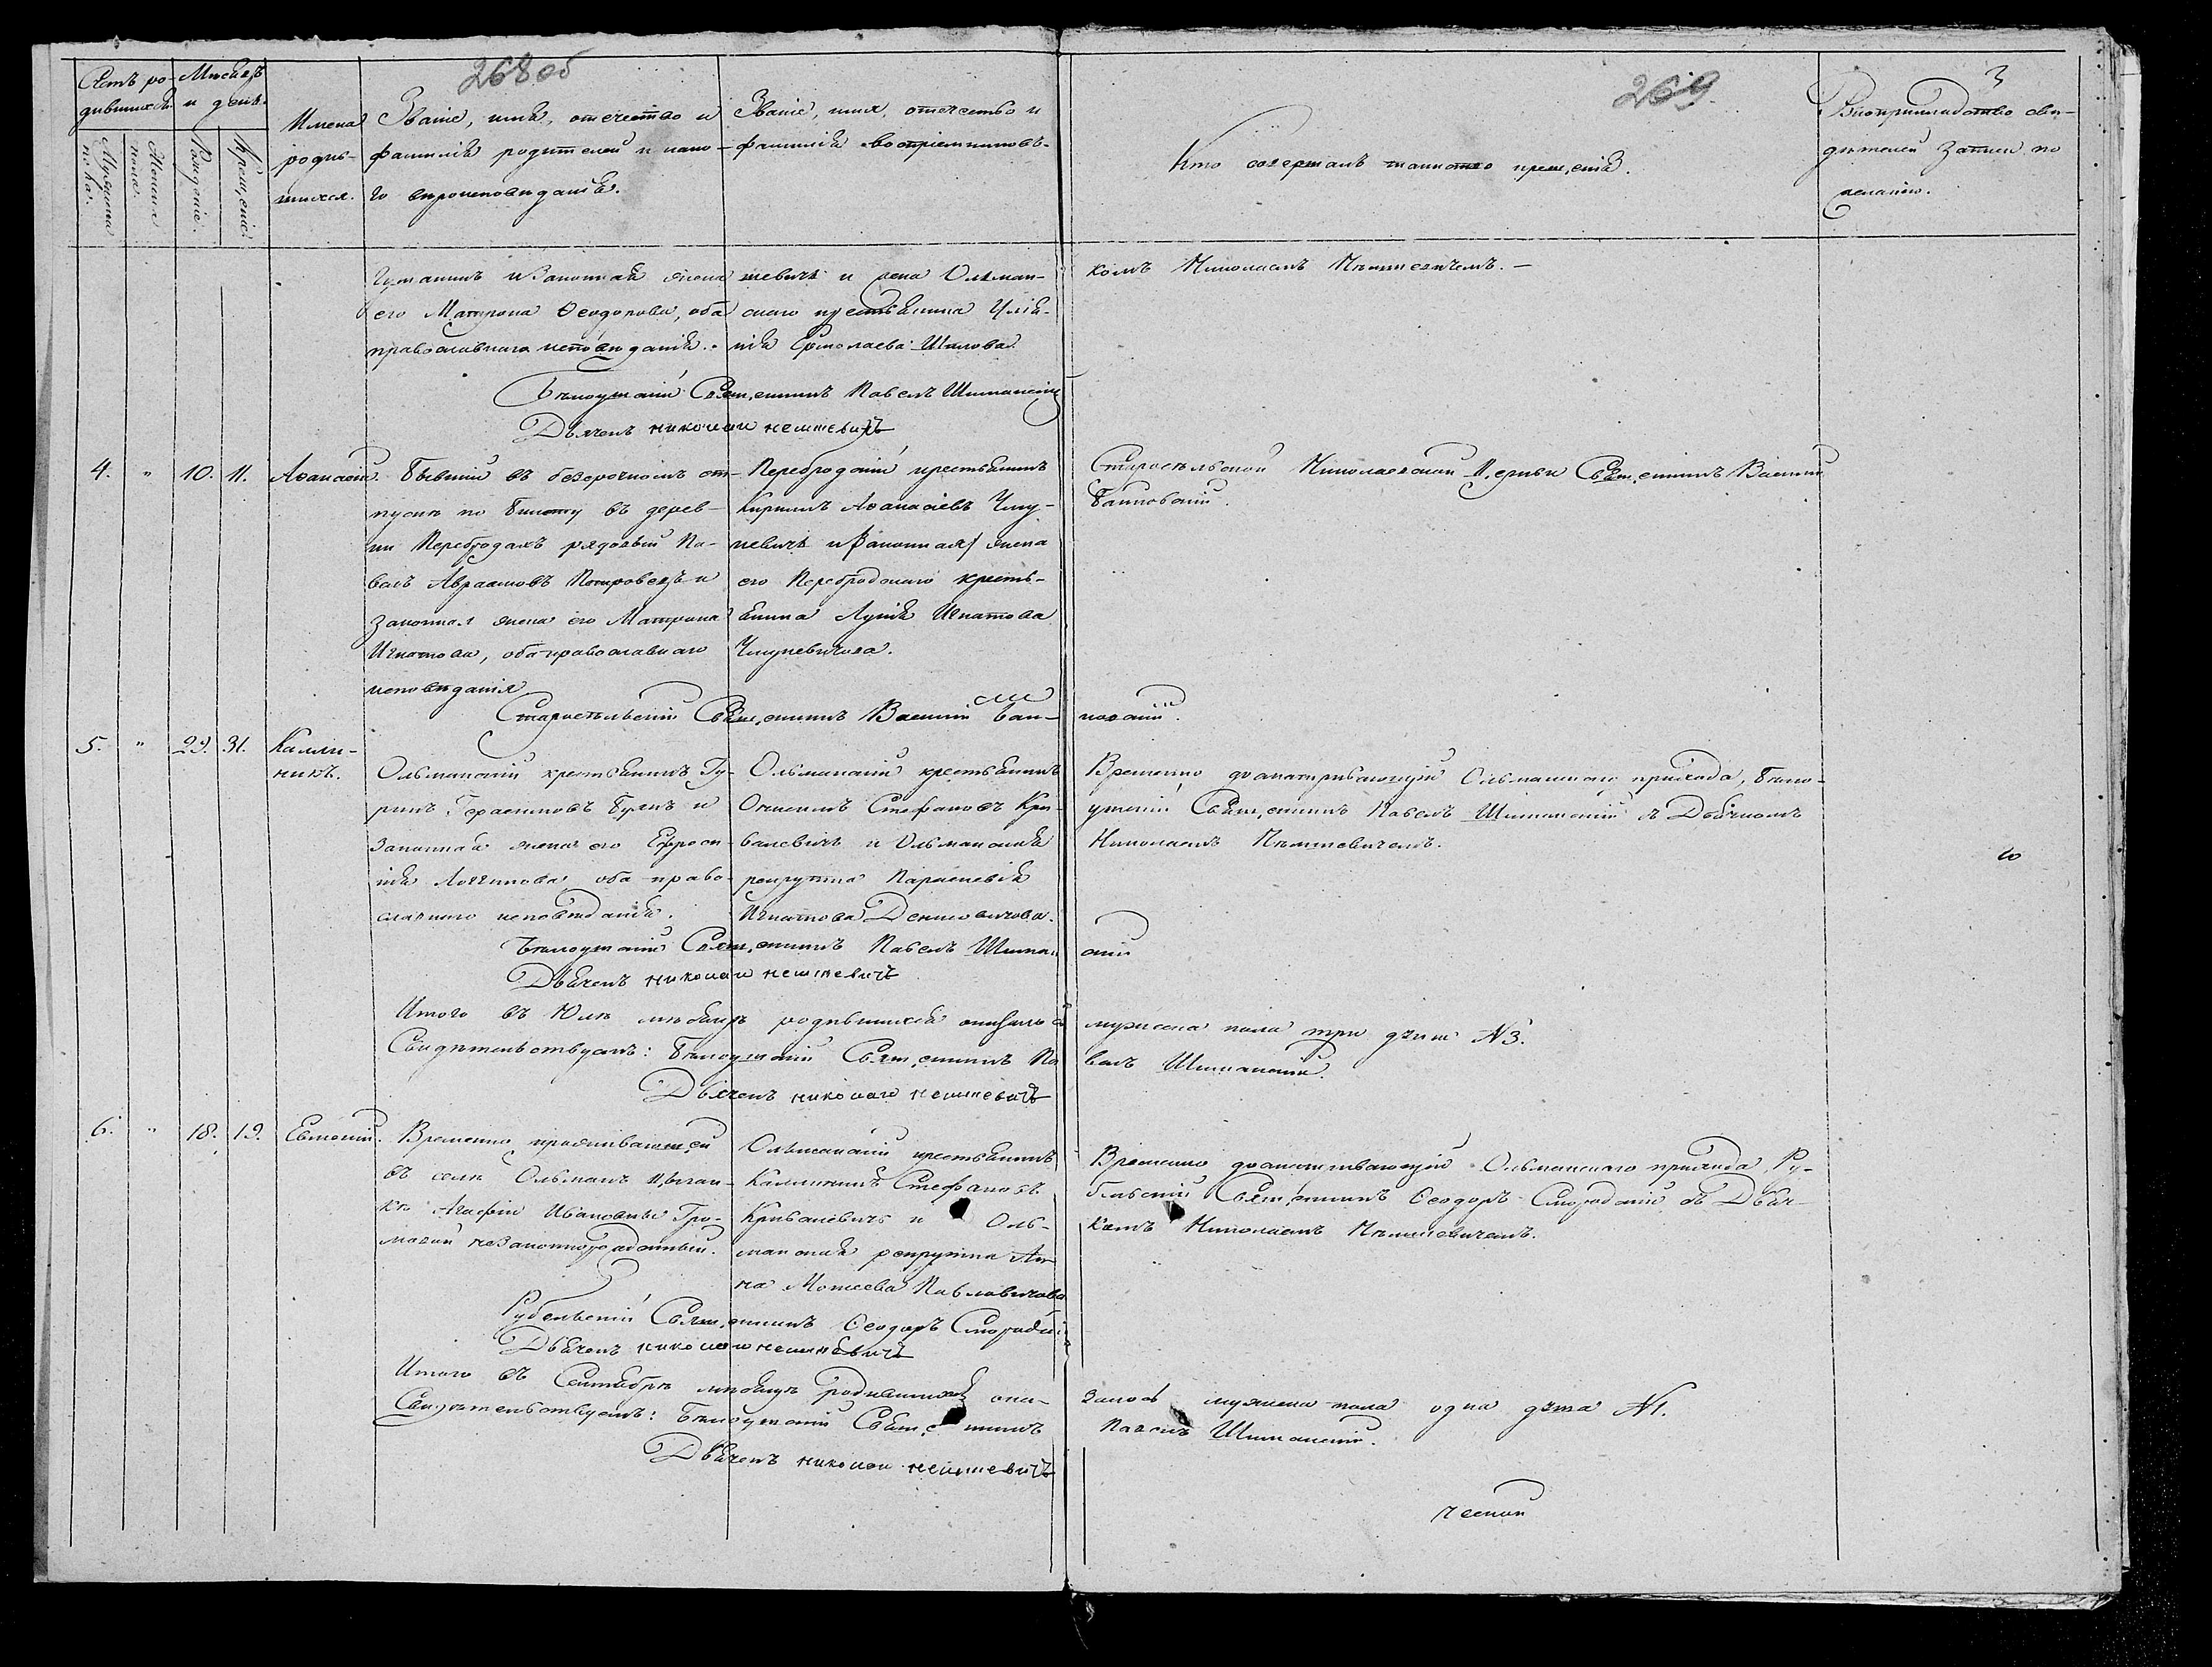 268 об
269.
3
Счетъ ро-
дившихся.
Мѣсяцъ
и день.
Мужеска
пола.
Женска
пола.
Рожденіе.
Крещеніе.
Имена
родив-
шихся.
Званіе, имя, отечество и
фамилія родителей и како-
го вѣроисповѣданія.
Званіе, имя, отечество и
фамилія воспріемниковъ.
Кто совершалъ таинство крещенія.
Рукоприкладство сви-
дѣтелей записи по
желанію.
и законная жена
его Матрона Ѳеодорова, оба
православнаго исповѣданія.
и жена Ольман-
скаго крестьянина Улія-
нія Ермолаева Шилова.
комъ Николаемъ Нѣмшевичемъ. —
Бѣлоушскій Священникъ Павелъ Шиманскій
Дьячекъ николаи немшевичъ
4. " 10. 11. Аѳанасій.
Бывшій въ безсрочномъ от-
пускѣ по билету въ дерев-
ни Перебродахъ рядовый Па-
велъ Авраамовъ Петровецъ и
законная жена его Матрона
Игнатова, оба православнаго
исповѣданія
Перебродскій крестьянинъ
Кириллъ Аѳанасіевъ Чму-
невичъ и законная жена
его Перебродскаго кресть-
янина Лукія Игнатова
Чмуневичова.
Старосельской Николаевской Церкви Священникъ Василій
Баиновскій.
Старосельскій Священникъ Василій Баи-
новскій.
5. " 29. 31. Калли-
никъ.
Ольманскій крестьянинъ Гу-
ринъ Герасимовъ Бунъ и
законная жена его Ефроси-
нія Логгинова оба право-
славнаго исповѣданія.
Ольманскій крестьянинъ
Онисимъ Стефановъ Кри-
валевичъ и Ольманская
рекрутка Параскевія
Игнатова Денисовичова.
Временно досматривающій Ольманскаго прихода, Бѣло-
ушскій Священникъ Павелъ Шиманскій съ Дьячкомъ
Николаемъ Нѣмшевичемъ.
Бѣлоушскій Священникъ Павелъ Шиман-
скій
Дьячекъ николаи немшевичъ
Итого въ Юлѣ мѣсяцѣ родившихся описалось мужеска пола три души №3.
Свидѣтельствуемъ: Бѣлоушскій Священникъ Па-
велъ Шиманскій.
Дьячекъ николаи немшевичъ
6. " 18. 19. Евменій.
Временно проживающей
въ селѣ Ольманъ Цыган-
кѣ Агафіи Ивановны Гро-
мовой незаконнорожденный.
Ольманскій крестьянинъ
Каллиникъ Стефановъ
Кривалевичъ и Оль-
манская рекрутка Ан-
на Моисеева Павловичова
Временно досматривающій Ольманскаго прихода, Ру-
бельскій Священникъ Ѳеодоръ Смородскій съ Дьяч-
комъ Николаемъ Нѣмшевичемъ.
Рубельскій Священникъ Ѳеодоръ Смородскій
Дьячекъ николаи немшевичъ
Итого въ Сентябрѣ мѣсяцѣ родившихся опи-
залось мужеска пола одна душа №1.
Свидѣтельствуемъ: Бѣлоушскій Священникъ
Павелъ Шиманскій.
Дьячекъ николаи немшевичъ